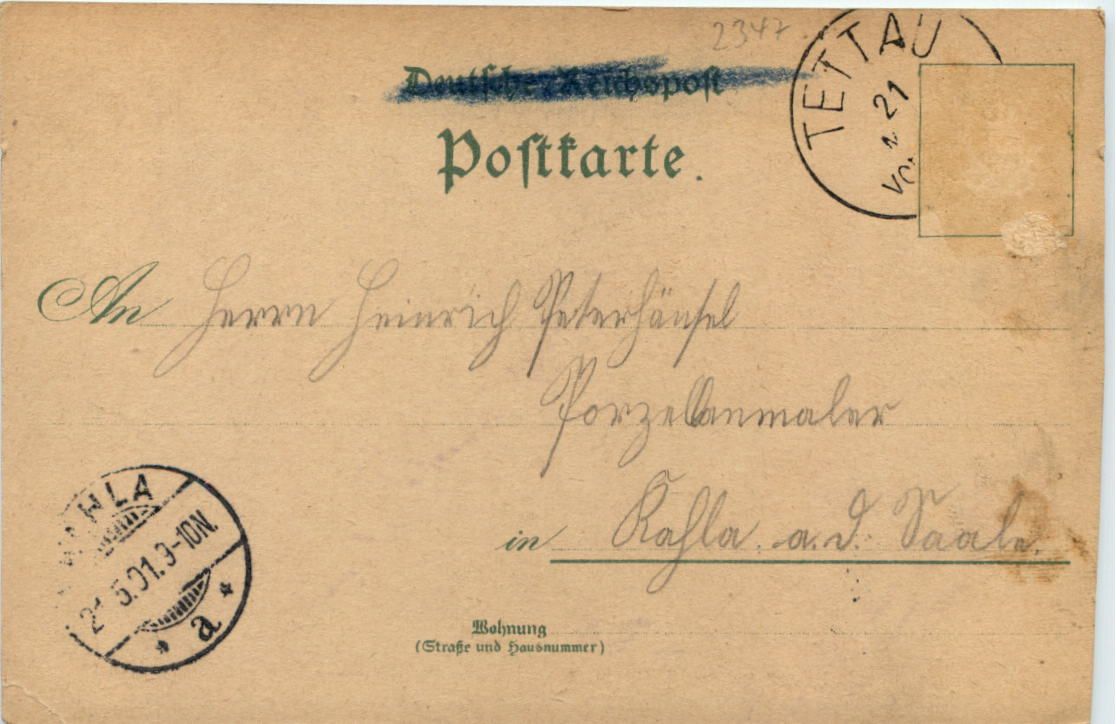 2347
Deutsche Reichspost
Postkarte.
TETTAU
21
An Herrn Heinrich Peterhänsel
Porzellanmaler
in Kahla a. d. Saale.
KAHLA
21.5.01.9-10N.
* a *
Wohnung
(Straße und Hausnummer)